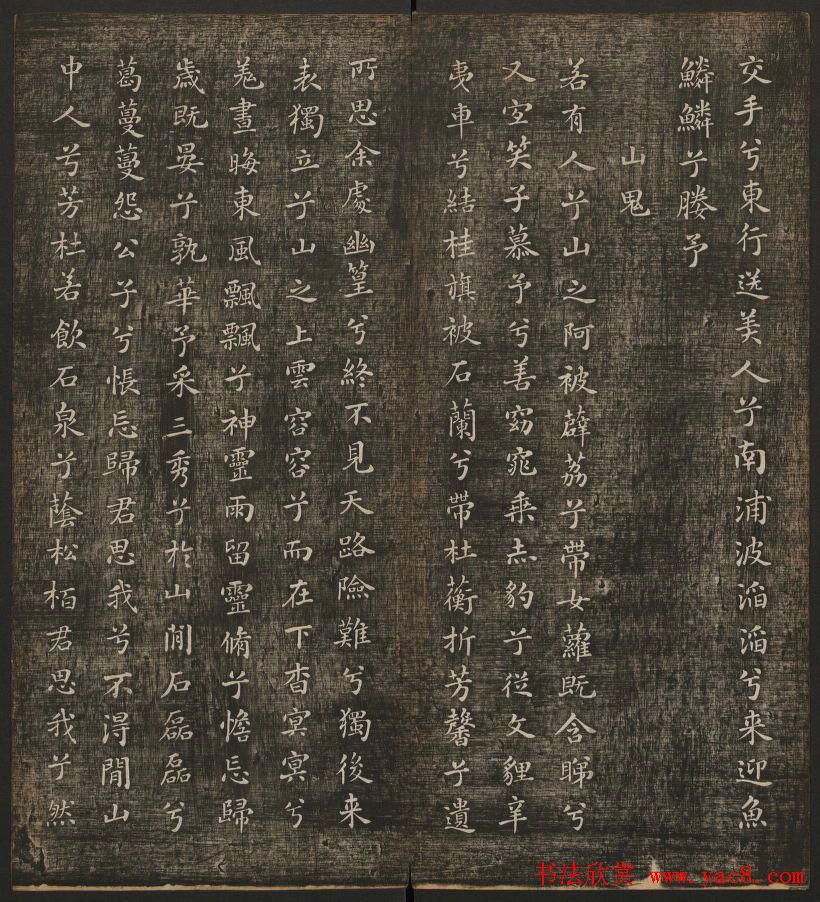 交手兮東行送美人兮南浦波滔滔兮来迎魚
鱗鱗兮媵予
山鬼
若有人兮山之阿被薜荔兮帶女蘿既含睇兮
又宜笑子慕予兮善窈窕乘赤豹兮從文貍辛
夷車兮結桂旗被石蘭兮帶杜蘅折芳馨兮遺
所思余處幽篁兮終不見天路險難兮獨後来
表獨立兮山之上雲容容兮而在下杳冥冥兮
羌晝晦東風飄飄兮神靈雨留靈脩兮憺忘歸
歲既晏兮孰華予采三秀兮於山間石磊磊兮
葛蔓蔓怨公子兮悵忘歸君思我兮不得閒山
中人兮芳杜若飲石泉兮蔭松柏君思我兮然
书法欣赏 www.yac8.com